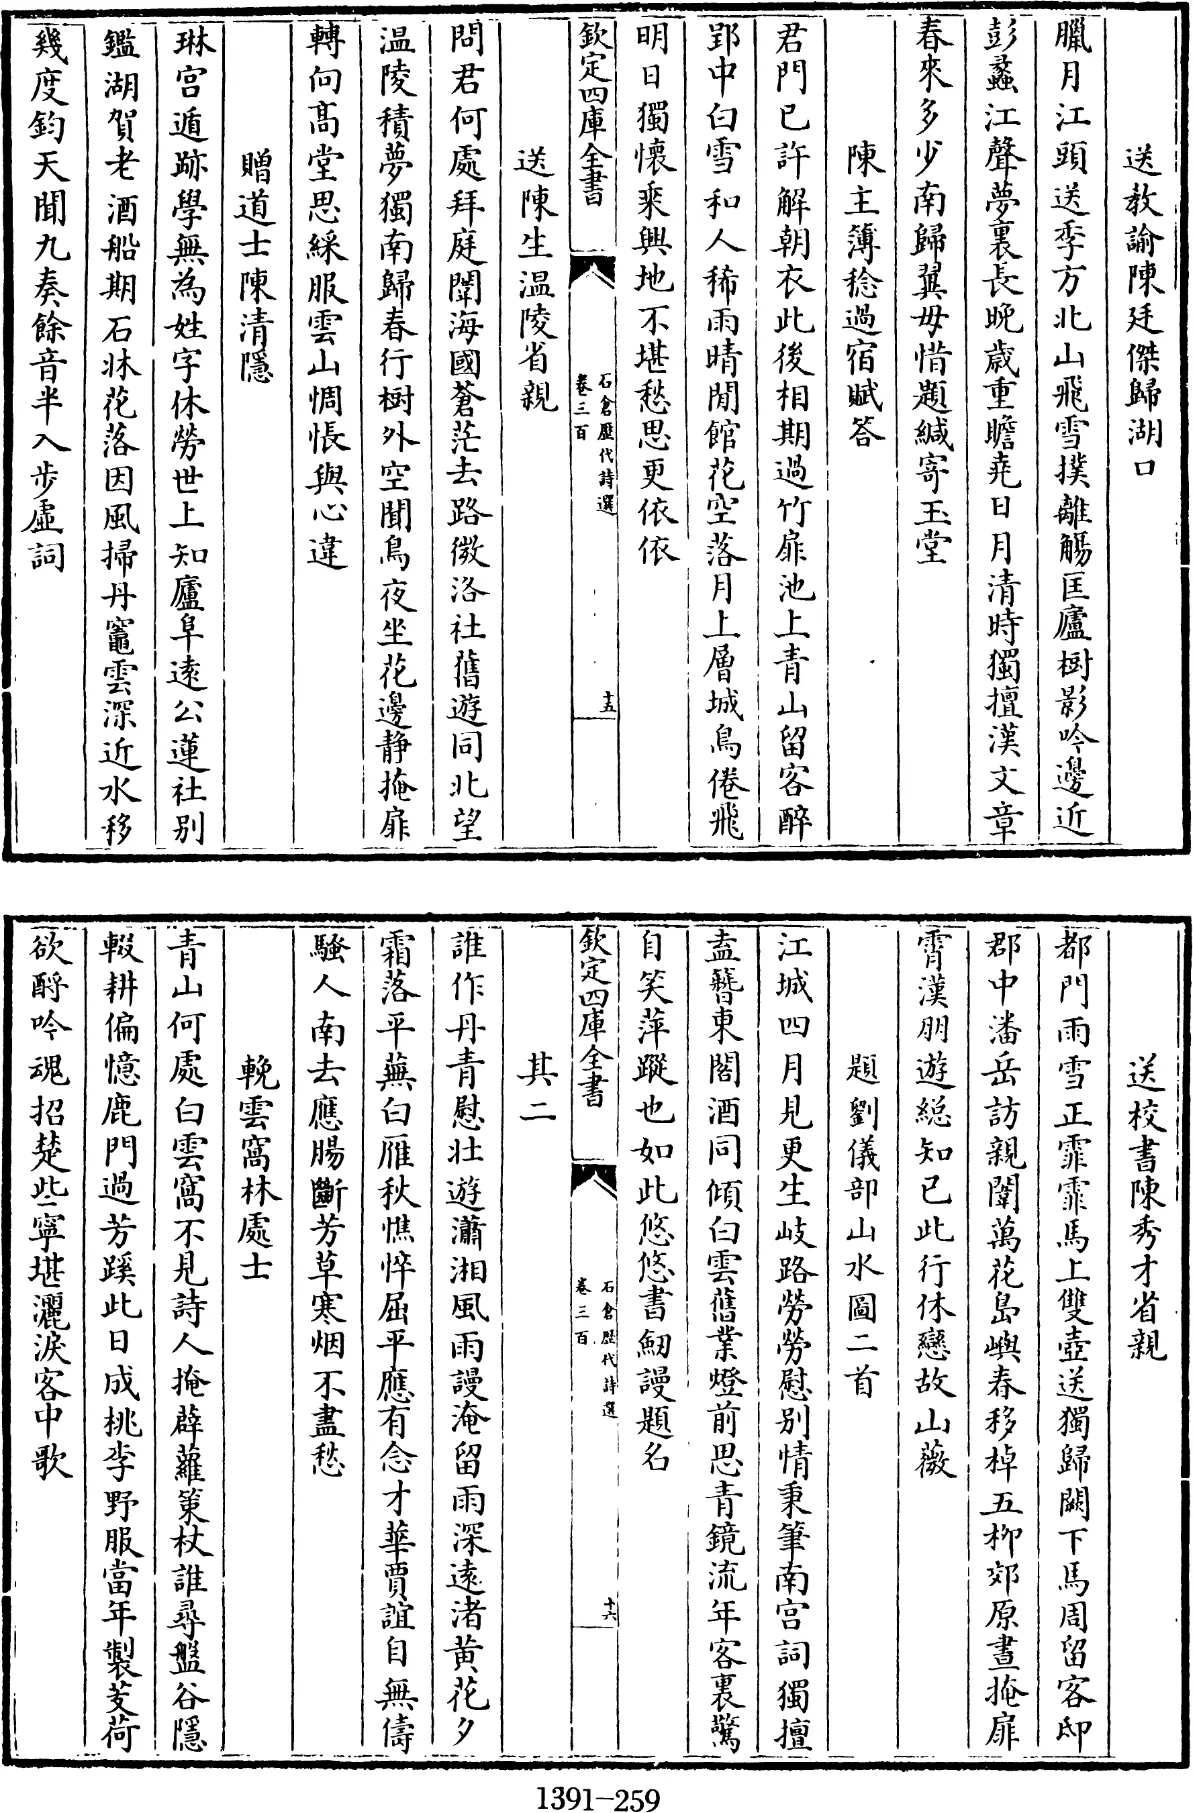 送教諭陳廷傑歸湖口
臘月江頭送季方北山飛雪撲離觴匡廬樹影吟邊近
彭蠡江聲夢裏長晚歲重瞻堯日月清時獨擅漢文章
春來多少南歸翼毋惜題緘寄玉堂
陳主簿稔過宿賦答
君門已許解朝衣此後相期過竹扉池上青山留客醉
郢中白雪和人稀雨晴閒館花空落月上層城鳥倦飛
明日獨懷乘興地不堪愁思更依依
欽定四庫全書
石倉歷代詩選
卷三百
十五
送陳生温陵省親
問君何處拜庭闈海國蒼茫去路微洛社舊遊同北望
温陵積夢獨南歸春行樹外空聞鳥夜坐花邊静掩扉
轉向高堂思綵服雲山惆悵與心違
贈道士陳清隱
琳宫遁跡學無為姓字休勞世上知廬阜遠公蓮社别
鑑湖賀老酒船期石牀花落因風掃丹竈雲深近水移
幾度鈞天聞九奏餘音半入步虛詞
送校書陳秀才省親
都門雨雪正霏霏馬上雙壺送獨歸闕下馬周留客邸
郡中潘岳訪親闈萬花島嶼春移棹五柳郊原晝掩扉
霄漢朋遊總知已此行休戀故山薇
題劉儀部山水圖二首
江城四月見更生岐路勞勞慰别情秉筆南宫詞獨擅
盍簪東閣酒同傾白雲舊業燈前思青鏡流年客裏驚
自笑萍蹤也如此悠悠書劒謾題名
欽定四庫全書
石倉歷代詩選
卷三百
十六
其二
誰作丹青慰壯遊瀟湘風雨謾淹留雨深遠渚黄花夕
霜落平蕪白雁秋憔悴屈平應有念才華賈誼自無儔
騷人南去應腸斷芳草寒烟不盡愁
輓雲窩林處士
青山何處白雲窩不見詩人掩薜蘿策杖誰尋盤谷隱
輟耕偏憶鹿門過芳蹊此日成桃李野服當年製芰荷
欲酹吟魂招楚些寧堪灑淚客中歌
1391-259